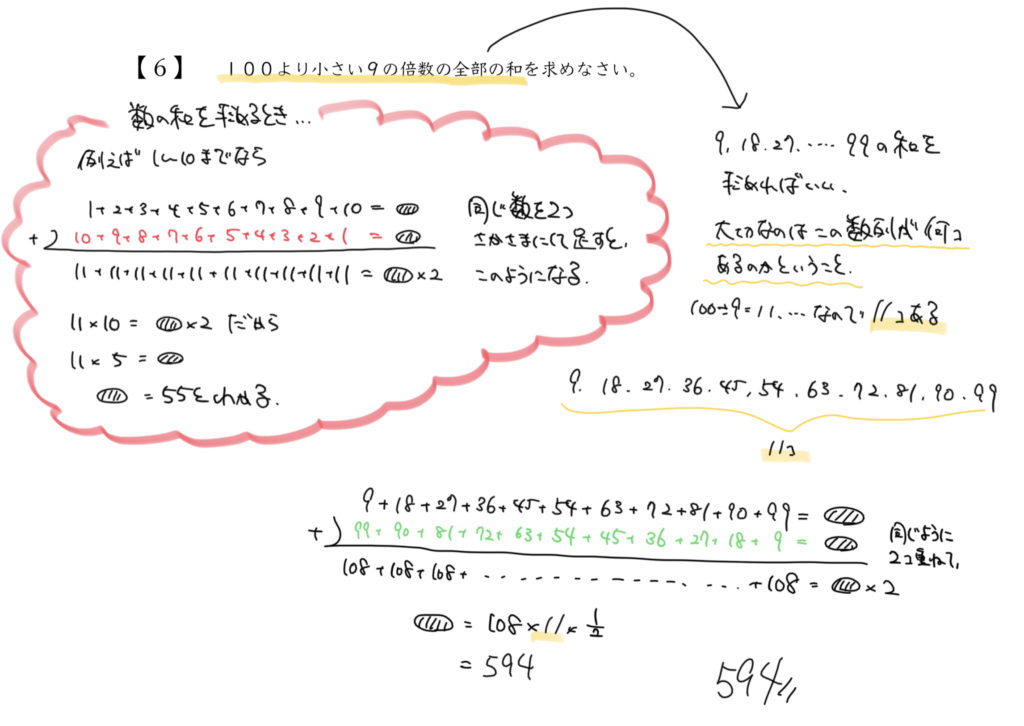 【６】 １００より小さい９の倍数の全部の和を求めなさい。
数の和を求めるとき...
例えば 1〜10までなら
1+2+3+4+5+6+7+8+9+10 =
+) 10+9+8+7+6+5+4+3+2+1 =
11+11+11+11+11+11+11+11+11+11 = ×2
同じ数を2コ
さかさまにして足すと、
このようになる.
11×10 = ×2 だから
11×5 =
= 55とわかる.
9, 18. 27. ‥‥ 99の和を
求めればいい、
大切なのはこの数列が何コ
あるのかということ.
100÷9=11. … なので 11コある
9. 18. 27. 36. 45, 54. 63. 72. 81. 90. 99
11コ
9+18+27+36+45+54+63+72+81+90+99 =
+) 99+90+81+72+63+54+45+36+27+18+9 =
108+108+108+ ‥‥‥‥‥‥‥‥ +108 = ×2
同じように
2コ重ねて、
= 108×11×1/2
= 594
594